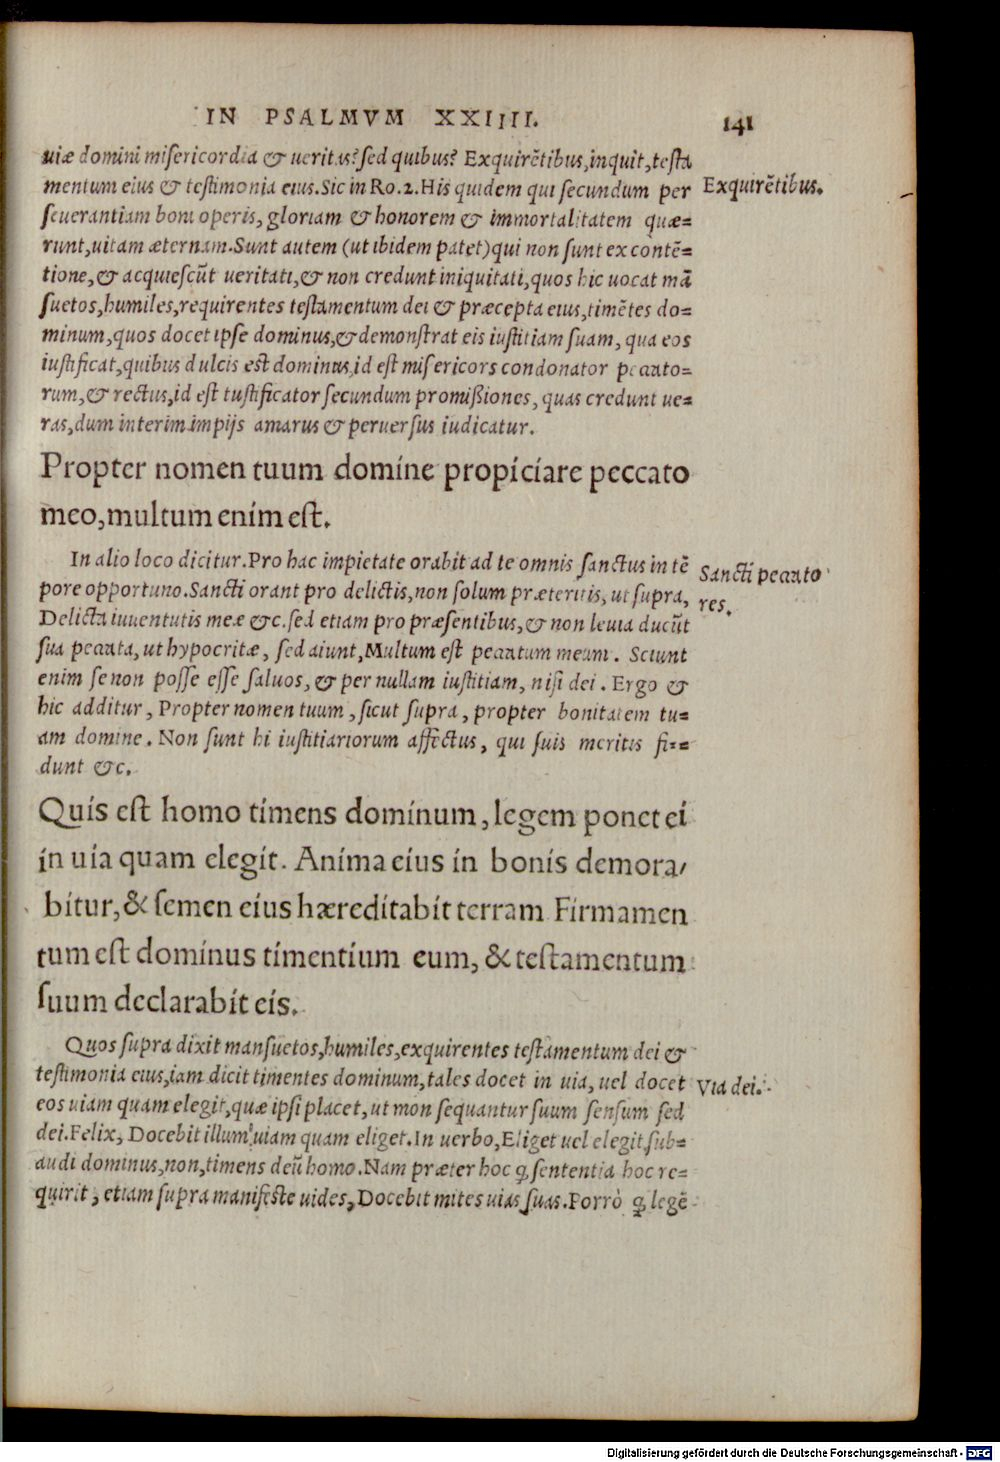 IN PSALMVM XXIIII. 141
uiæ domini misericordia & ueritas? sed quibus? Exquirẽtibus, inquit, testa
mentum eius & testimonia eius. Sic in Ro. 2. His quidem qui secundum per
Exquirẽtibus.
seuerantiam boni operis, gloriam & honorem & immortalitatem quæ=
runt, uitam æternam. Sunt autem (ut ibidem patet) qui non sunt ex contẽ=
tione, & acquiescũt ueritati, & non credunt iniquitati, quos hic uocat mã
suetos, humiles, requirentes testamentum dei & præcepta eius, timẽtes do=
minum, quos docet ipse dominus, & demonstrat eis iustitiam suam, qua eos
iustificat, quibus dulcis est dominus, id est misericors condonator peccato=
rum, & rectus, id est iustificator secundum promißiones, quas credunt ue=
ras, dum interim impijs amarus & peruersus iudicatur.
Propter nomen tuum domine propiciare peccato
meo, multum enim est.
In alio loco dicitur. Pro hac impietate orabit ad te omnis sanctus in tẽ
Sancti peccato
pore opportuno. Sancti orant pro delictis, non solum præteritis, ut supra,
res.
Delicta iuuentutis meæ &c. sed etiam pro præsentibus, & non leuia ducũt
sua peccata, ut hypocritæ, sed aiunt, Multum est peccatum meum. Sciunt
enim se non posse esse saluos, & per nullam iustitiam, nisi dei. Ergo &
hic additur, Propter nomen tuum, sicut supra, propter bonitatem tu=
am domine. Non sunt hi iustitiariorum affectus, qui suis meritis fi=
dunt &c.
Quis est homo timens dominum, legem ponet ei
in uia quam elegit. Anima eius in bonis demora/
bitur, & semen eius hæreditabit terram Firmamen
tum est dominus timentium eum, & testamentum
suum declarabit eis.
Quos supra dixit mansuetos, humiles, exquirentes testamentum dei &
testimonia eius, iam dicit timentes dominum, tales docet in uia, uel docet
Via dei.
eos uiam quam elegit, quæ ipsi placet, ut non sequantur suum sensum sed
dei. Felix, Docebit illum uiam quam eliget. In uerbo, Eliget uel elegit, sub=
audi dominus, non, timens deũ homo. Nam præter hoc ꝗ sententia hoc re=
quirit, etiam supra manifeste uides, Docebit mites uias suas. Porrò ꝗ legẽ
Digitalisierung gefördert durch die Deutsche Forschungsgemeinschaft - DFG